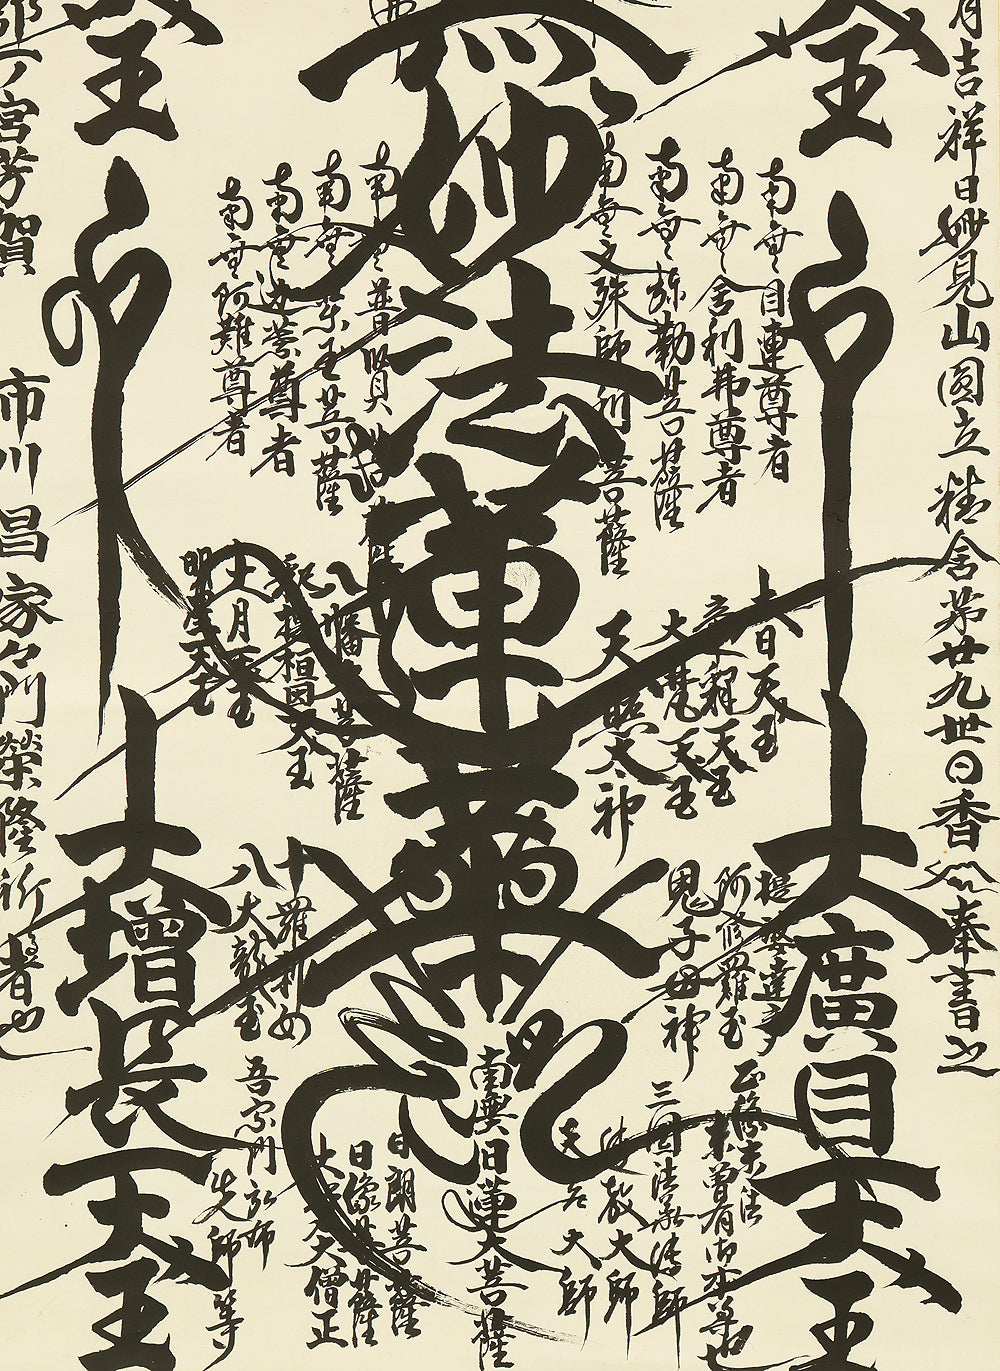 月吉祥日妙見山圓立精舎第廿九世日香
奉書之
王
南無目連尊者
南無舎利弗尊者
南無弥勒菩薩
南無文殊師利菩薩
妙法蓮華
南無普賢菩薩
南無薬王菩薩
南無迦葉尊者
南無阿難尊者
王
大日天王
帝釈天王
大梵天王
天照太神
八幡大菩薩
釈提桓因天王
大月天王
明星天王
大廣目天王
提婆達多
阿修羅王
鬼子母神
十羅刹女
八大龍王
大増長天王
正像末法
未曾有御本尊也
三國法華傳師
傳教大師
天台大師
南無日蓮大菩薩
日朗菩薩
日像菩薩
大僧正
吾宗門弘布
先師等
一ノ宮芳賀
市川昌家々門榮隆祈
者也